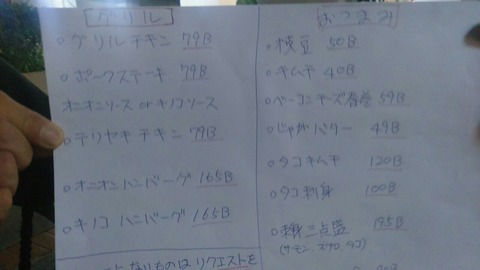 グリル
○グリルチキン 79B
○ポークステーキ 79B
オニオンソース or キノコソース
○テリヤキチキン 79B
○オニオンハンバーグ 165B
○キノコハンバーグ 165B
ないものはリクエストを
おつまみ
○枝豆 50B
○キムチ 40B
○ベーコンチーズ春巻 59B
○じゃがバター 49B
○タコキムチ 120B
○タコ刺身 100B
○刺身三点盛 195B
(サーモン、マグロ、タコ)